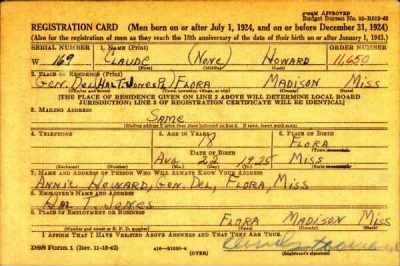 FORM APPROVED
Budget Bureau No.
REGISTRATION CARD (Men born on or after July 1, 1924, and on or before December 31, 1924)
(Also for the registration of men as they reach the 18th anniversary of the date of their birth on or after January 1, 1943.)
SERIAL NUMBER 1. NAME (Print) ORDER NUMBER
W 169 CLAUDE (NONE) HOWARD 11,650
(First) (Middle) (Last)
2. PLACE OF RESIDENCE (Print)
GEN. DEL. (HAL T. JONES) FLORA MADISON MISS
(THE PLACE OF RESIDENCE GIVEN ON LINE 2 ABOVE WILL DETERMINE LOCAL BOARD
JURISDICTION; LINE 2 OF REGISTRATION CERTIFICATE WILL BE IDENTICAL)
3. MAILING ADDRESS
SAME
(Mailing address if other than place indicated on line 2. If same, insert word same)
4. TELEPHONE 5. AGE IN YEARS 6. PLACE OF BIRTH
18 FLORA
DATE OF BIRTH
AUG. 22 1925 MISS
(Exchange) (Number) (Mo.) (Day) (Yr.) (State or country)
7. NAME AND ADDRESS OF PERSON WHO WILL ALWAYS KNOW YOUR ADDRESS
ANNIE HOWARD, GEN. DEL, FLORA, MISS
8. EMPLOYER'S NAME AND ADDRESS
HAL T. JONES
9. PLACE OF EMPLOYMENT OR BUSINESS
FLORA MADISON MISS
(Number and street or R. F. D. number) (Town) (County) (State)
I AFFIRM THAT I HAVE VERIFIED ABOVE ANSWERS AND THAT THEY ARE TRUE.
DSS Form 1 (Rev. 11-16-42) (OVER)